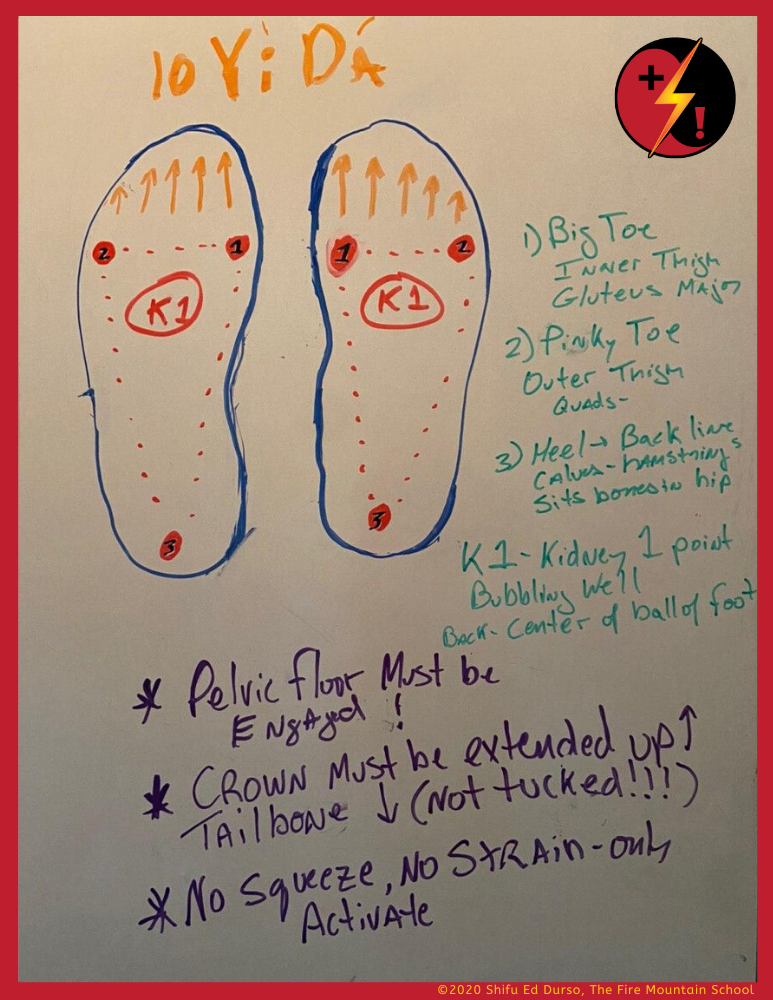 10 Yi Dá
+
!
2 1 1 2
K1 K1
3 3
1) Big Toe
Inner Thigh
Gluteus Major
2) Pinky Toe
Outer Thigh
Quads-
3) Heel → Back line
Calves-hamstrings
Sits bones in hip
K1- Kidney 1 point
Bubbling Well
Back- Center of ball of foot
* Pelvic floor Must be
Engaged !
* CROWN Must be extended up ↑
Tailbone ↓ (Not tucked!!!)
* No Squeeze, No STRAin-only
Activate
©2020 Shifu Ed Durso, The Fire Mountain School